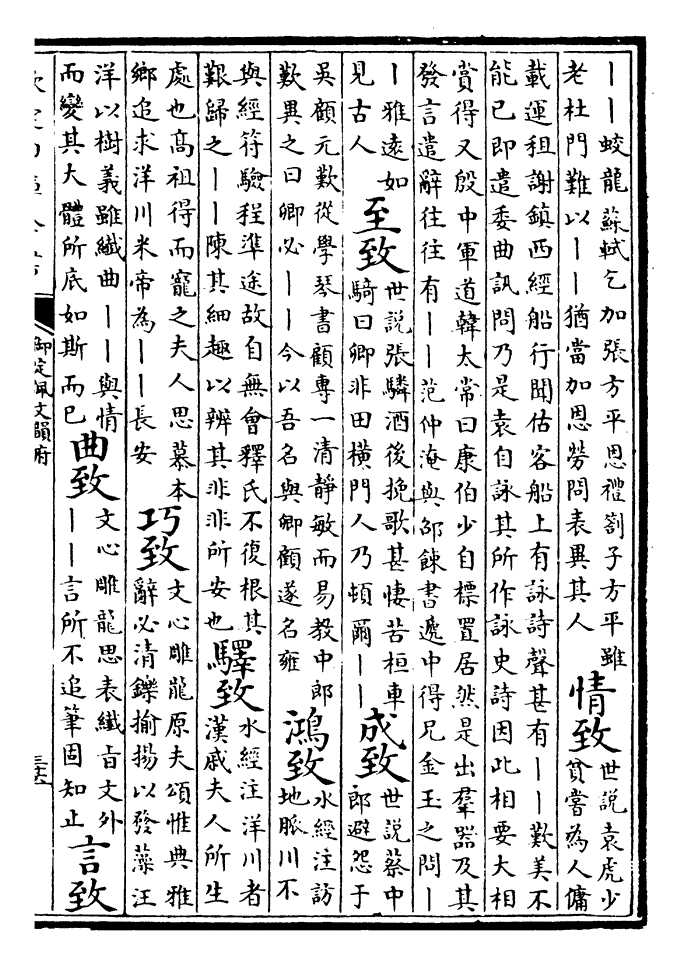 ——蛟龍蘇軾乞加張方平恩禮劄子方平雖
老杜門難以——猶當加恩勞問表異其人
情致
世說袁虎少
貧嘗為人傭
載運租謝鎮西經船行聞估客船上有詠詩聲甚有——歎美不
能已即遣委曲訊問乃是袁自詠其所作詠史詩因此相要大相
賞得又殷中軍道韓太常曰康伯少自標置居然是出羣器及其
發言遣辭往往有——范仲淹與邵餗書遞中得兄金玉之問—
—雅遠如
見古人
至致
世說張驎酒後挽歌甚悽苦桓車
騎曰卿非田橫門人乃頓爾——
成致
世說蔡中
郎避怨于
吳顧元歎從學琴書顧專一清靜敏而易教中郎
歎異之曰卿必——今以吾名與卿顧遂名雍
鴻致
水經注訪
地脈川不
與經符驗程準途故自無會釋氏不復根其
艱歸之——陳其細趣以辨其非非所安也
驛致
水經注洋川者
漢戚夫人所生
處也高祖得而寵之夫人思慕本
鄉追求洋川米帝為——長安
巧致
文心雕龍原夫頌惟典雅
辭必清鑠揄揚以發藻汪
洋以樹義雖纖曲——與情
而變其大體所底如斯而已
曲致
文心雕龍思表纖旨文外
——言所不追筆固知止
言致
御定佩文韻府